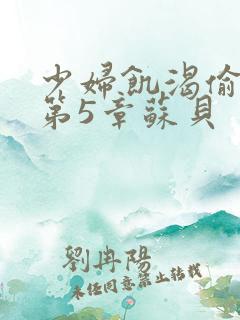 少婦飢渴偷
第5章蘇貝
劉冉陽
未经同意禁止转载